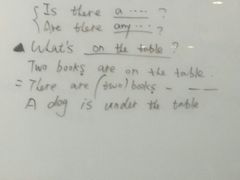 Is there a ....?
Are there any....?
▲ What's on the table?
Two books are on the table.
= There are (two) books - — —
A dog is under the table